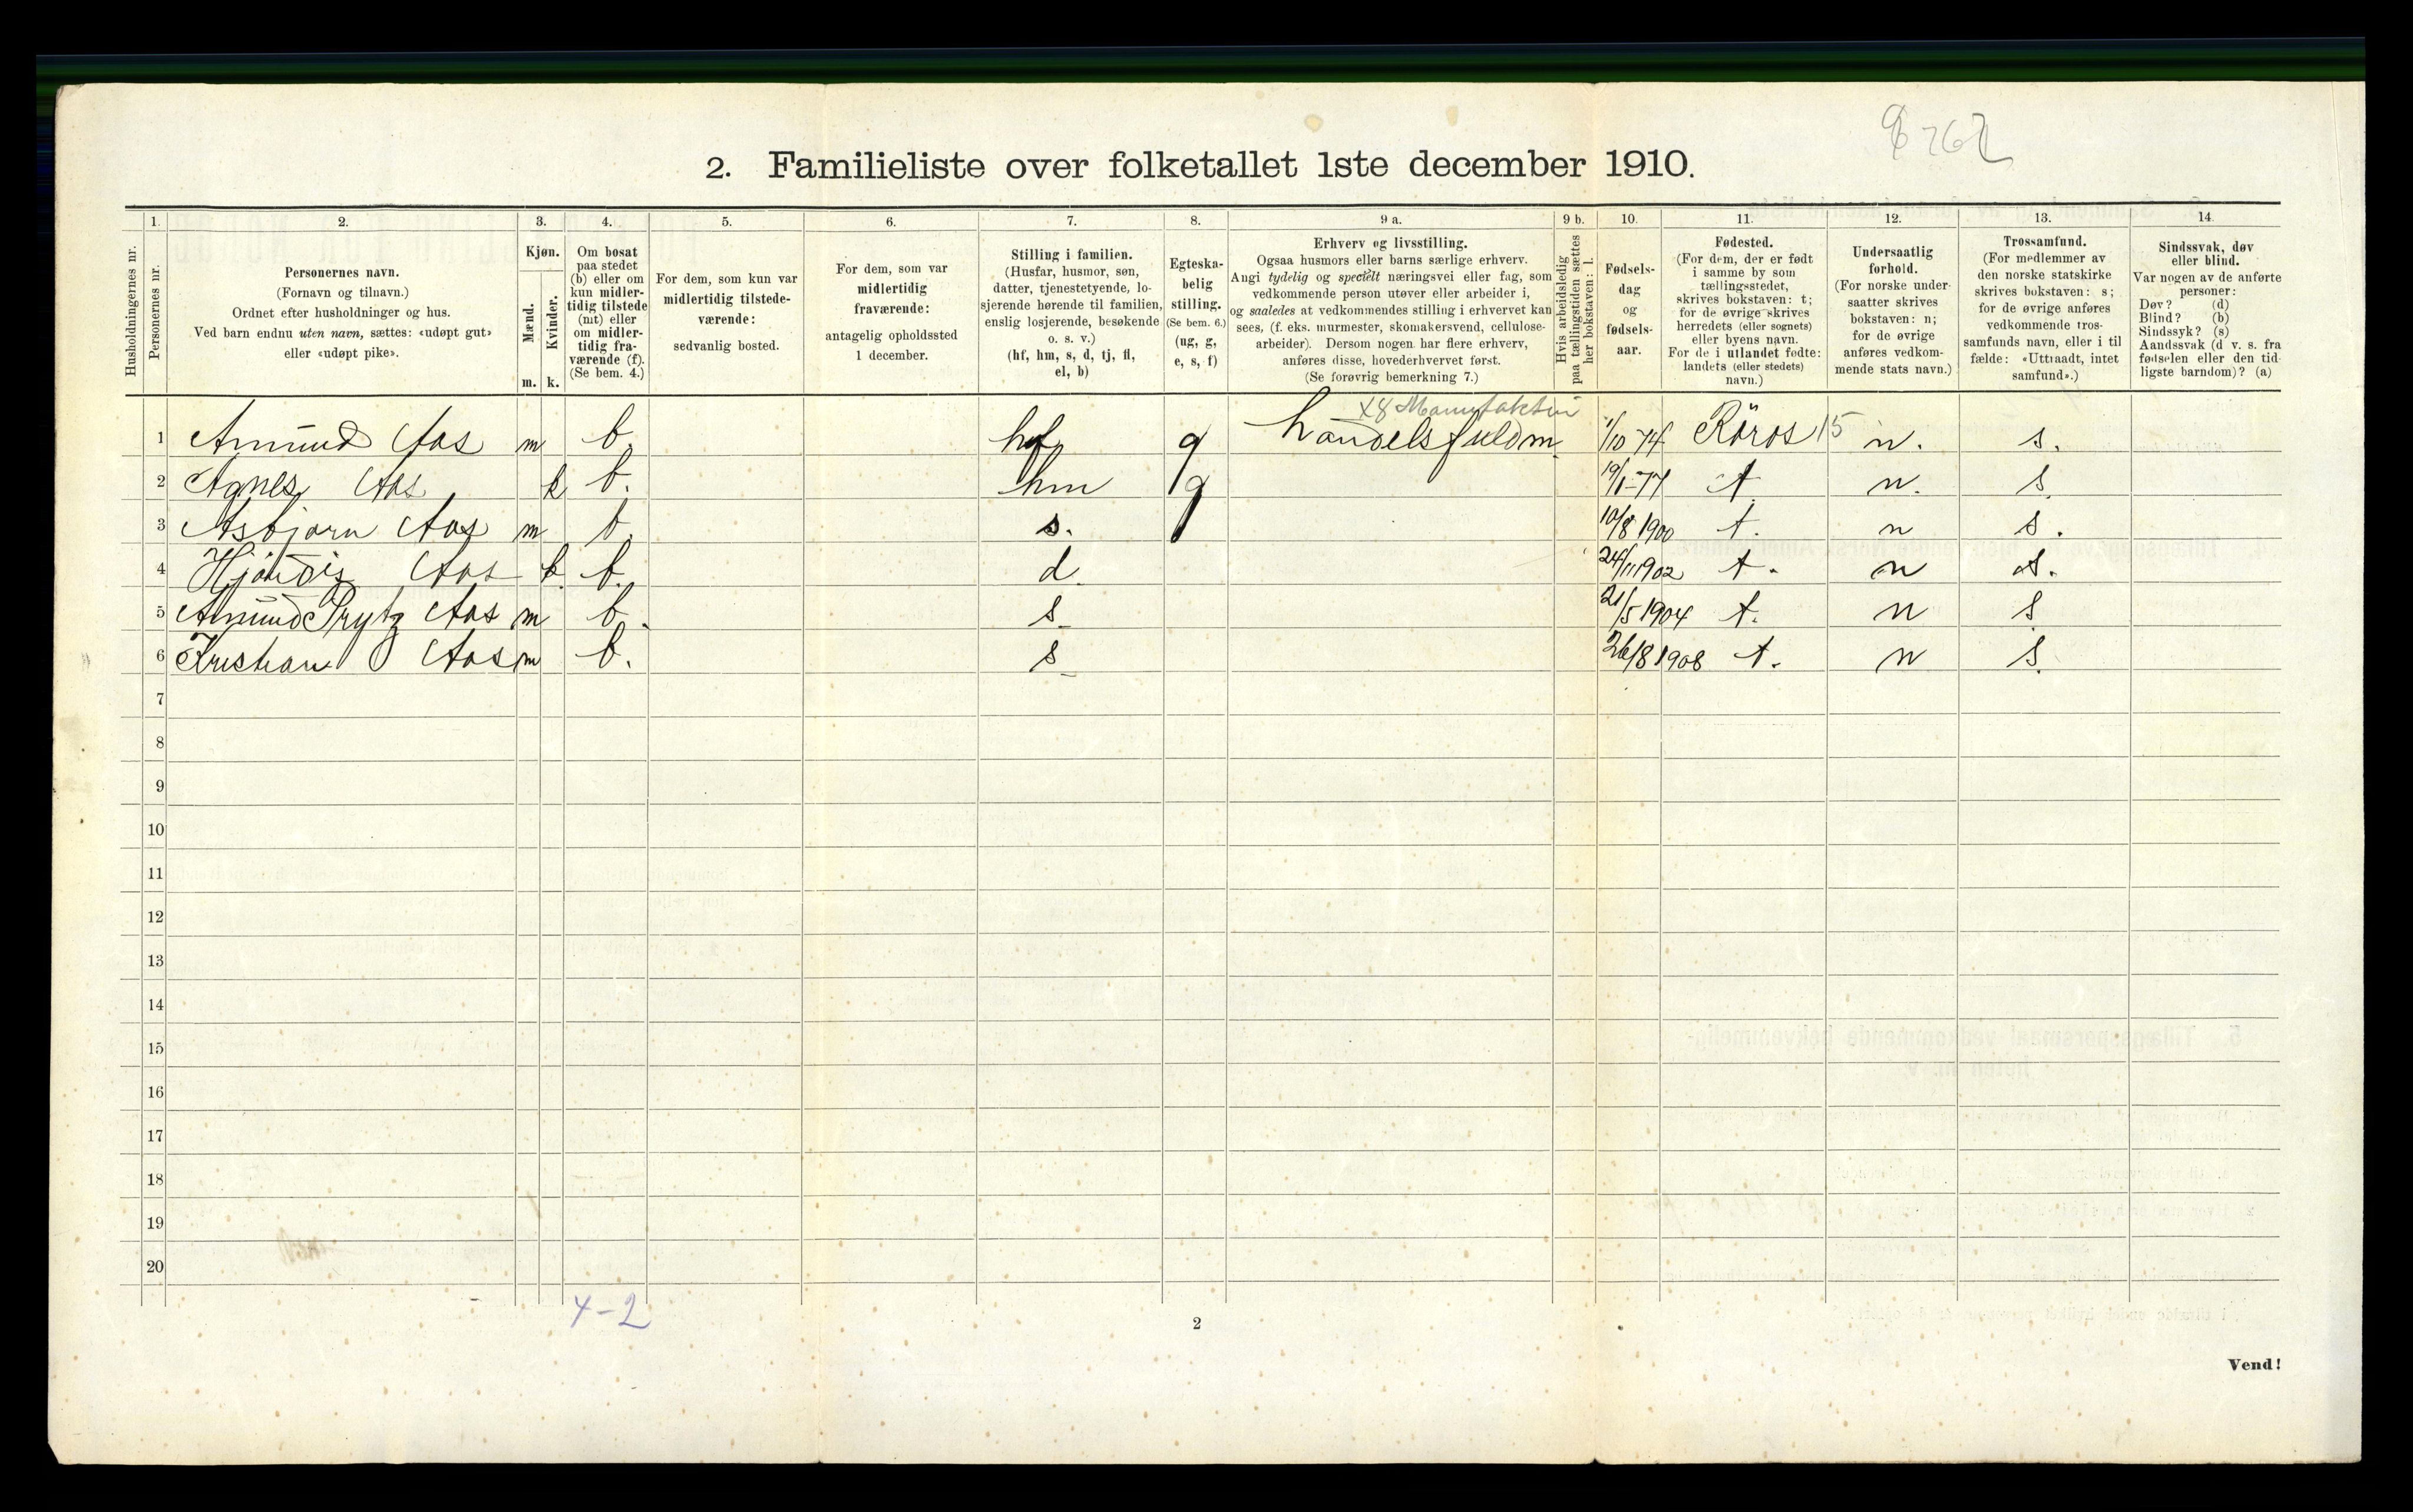 2. Familieliste over folketallet 1ste december 1910.
1. 2. 3. 4. 5. 6. 7. 8. 9 a. 9 b. 10. 11. 12. 13. 14.
Husholdningernes nr.
Personernes nr.
Personernes navn.
(Fornavn og tilnavn.)
Ordnet efter husholdninger og hus.
Ved barn endnu uten navn, sættes: «udøpt gut»
eller «udøpt pike».
Kjøn.
Mænd.
Kvinder.
m. k.
Om bosat
paa stedet
(b) eller om
kun midler-
tidig tilstede
(mt) eller
om midler-
tidig fra-
værende (f).
(Se bem. 4.)
For dem, som kun var
midlertidig tilstede-
værende:
sedvanlig bosted.
For dem, som var
midlertidig
fraværende:
antagelig opholdssted
1 december.
Stilling i familien.
(Husfar, husmor, søn,
datter, tjenestetyende, lo-
sjerende hørende til familien,
enslig losjerende, besøkende
o. s. v.)
(hf, hm, s, d, tj, fl,
el, b)
Egteska-
belig
stilling.
(Se bem. 6.)
(ug, g,
e, s, f)
Erhverv og livsstilling.
Ogsaa husmors eller barns særlige erhverv.
Angi tydelig og specielt næringsvei eller fag, som
vedkommende person utøver eller arbeider i,
og saaledes at vedkommendes stilling i erhvervet kan
sees, (f. eks. murmester, skomakersvend, cellulose-
arbeider). Dersom nogen har flere erhverv,
anføres disse, hovederhvervet først.
(Se forøvrig bemerkning 7.)
Hvis arbeidsledig
paa tællingstiden sættes
her bokstaven: l.
Fødsels-
dag
og
fødsels-
aar.
Fødested.
(For dem, der er født
i samme by som
tællingsstedet,
skrives bokstaven: t;
for de øvrige skrives
herredets (eller sognets)
eller byens navn.
For de i utlandet fødte:
landets (eller stedets)
navn.)
Undersaatlig
forhold.
(For norske under-
saatter skrives
bokstaven: n;
for de øvrige
anføres vedkom-
mende stats navn.)
Trossamfund.
(For medlemmer av
den norske statskirke
skrives bokstaven: s;
for de øvrige anføres
vedkommende tros-
samfunds navn, eller i til
fælde: «Uttraadt, intet
samfund».)
Sindssvak, døv
eller blind.
Var nogen av de anførte
personer:
Døv? (d)
Blind? (b)
Sindssyk? (s)
Aandssvak (d v. s. fra
fødselen eller den tid-
ligste barndom)? (a)
X8 Manufaktur
1 Amund Aas m b. hf g handelsfuldm. 1/10-74 Röros 15 n. s.
2 Agnes Aas k b. hm g 19/1-77 t. n. s.
3 Asbjørn Aas m b. s. 10/8 1900 t. n s.
4 Hjördis Aas k b. d. 24/11 1902 t. n s.
5 Amund Prytz Aas m b. s 21/5 1904 t. n s.
6 Kristian Aas m b. s 26/8 1908 t. n s.
7
8
9
10
11
12
13
14
15
16
17
18
19
20
4-2
2
Vend!